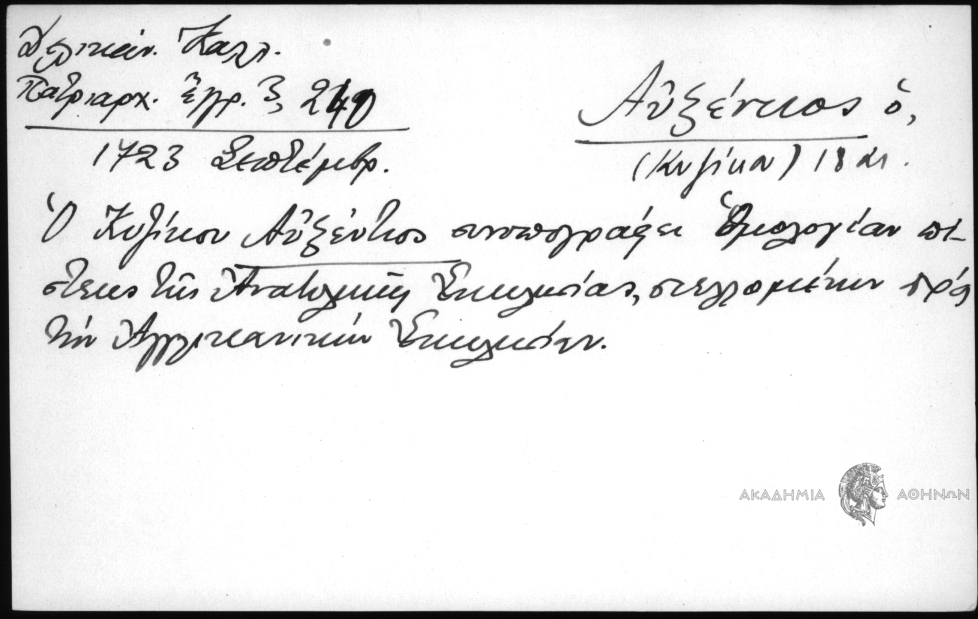 Δελικάν. Καλλ.
Πατριαρχ. Ἔγγρ. Ξ, 240
1723 Σεπτέμβρ.
Αὐξέντιος ὁ,
(Κυζίκου) 18 αι.
Ὁ Κυζίκου Αὐξέντιος συνυπογράφει Ὁμολογίαν πί-
στεως τῆς Ἀνατολικῆς Ἐκκλησίας, στελλομένην πρός
τήν Ἀγγλικανικήν Ἐκκλησίαν.
ΑΚΑΔΗΜΙΑ ΑΘΗΝΩΝ